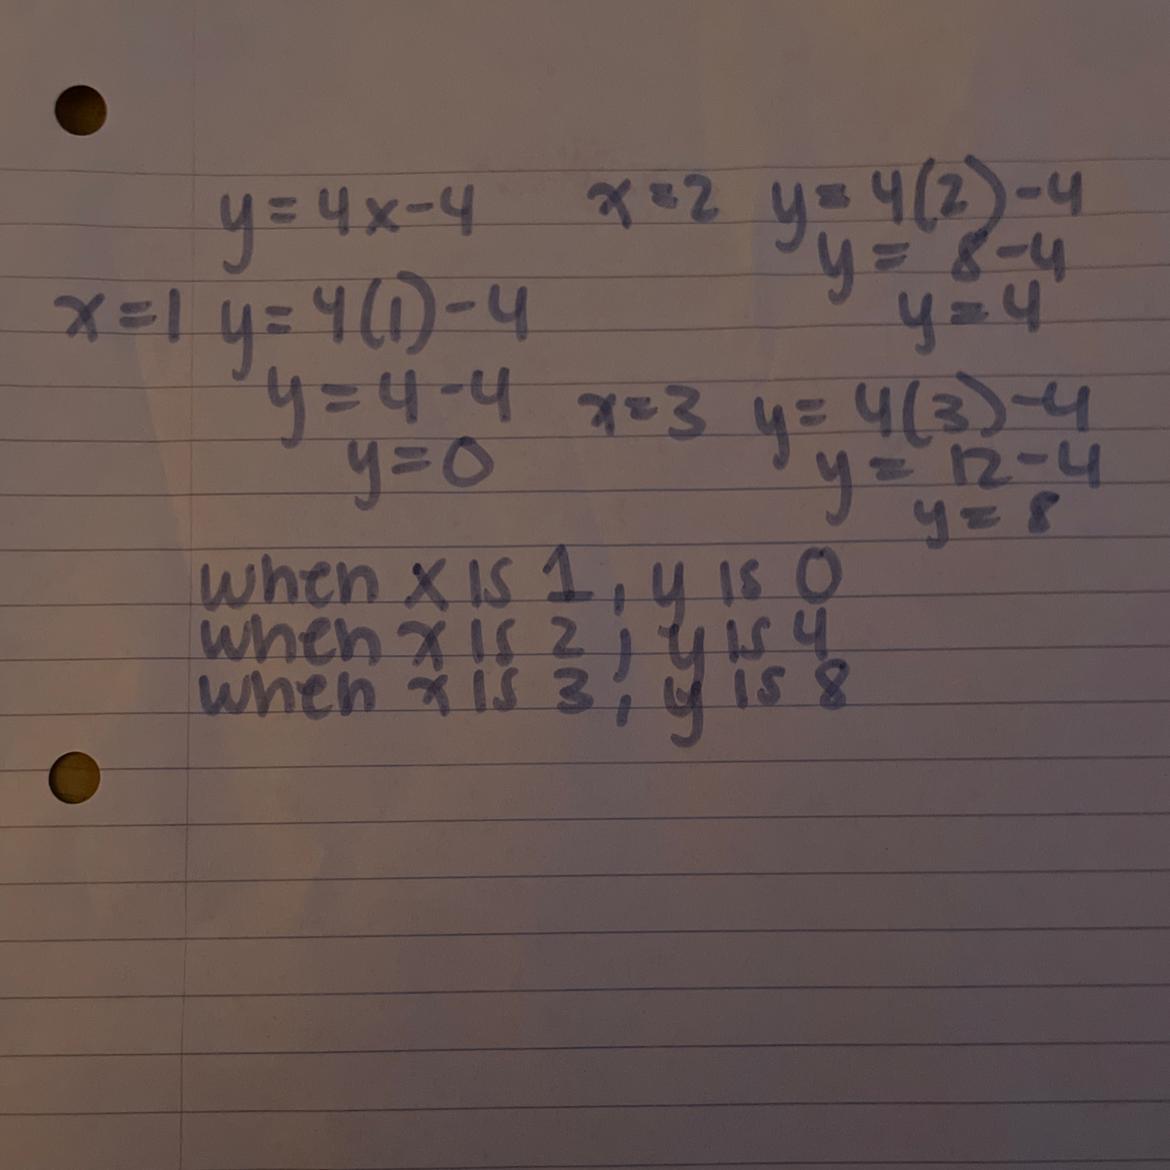 y = 4x-4
x=1 y= 4(1)-4
y = 4-4
y=0
x=2 y= 4(2)-4
y= 8-4
y=4
x=3 y= 4(3)-4
y = 12-4
y= 8
when x is 1, y is 0
when x is 2, y is 4
when x is 3, y is 8